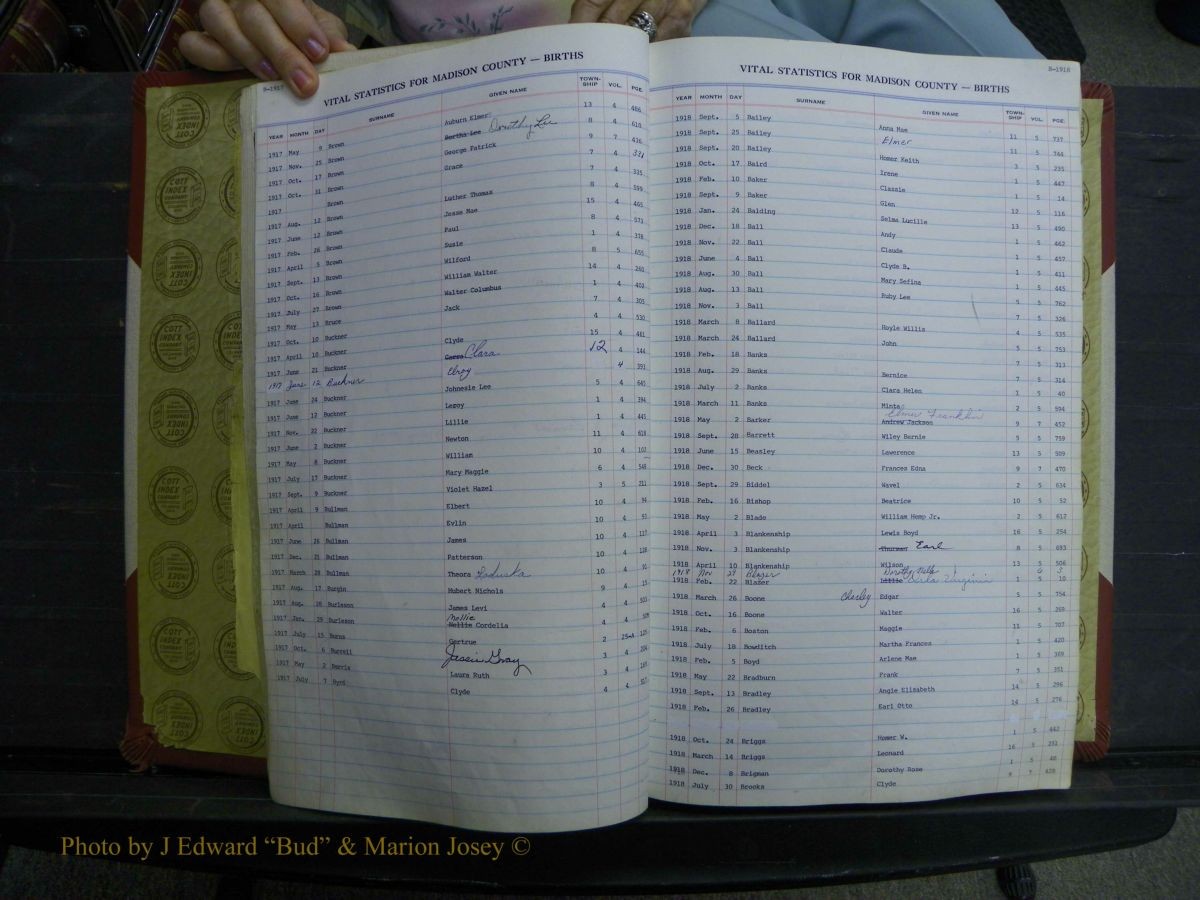 B-1917
VITAL STATISTICS FOR MADISON COUNTY — BIRTHS
YEAR MONTH DAY SURNAME GIVEN NAME TOWN-SHIP VOL. PGE.
1917 May 9 Brown Auburn Elmer 13 4 486
1917 Nov. 25 Brown Bertha Lee Dorothy Lee 8 4 610
1917 Oct. 17 Brown George Patrick 9 7 436
1917 Oct. 31 Brown Grace 7 4 331
1917 Brown 7 4 335
1917 Aug. 12 Brown Luther Thomas 8 4 599
1917 June 12 Brown Jesse Mae 15 4 465
1917 Feb. 26 Brown Paul 8 4 573
1917 April 5 Brown Susie 1 4 378
1917 Sept. 13 Brown Wilford 8 5 655
1917 Oct. 16 Brown William Walter 14 4 260
1917 July 27 Brown Walter Columbus 1 4 402
1917 May 13 Bruce Jack 7 4 305
1917 Oct. 10 Buckner 4 4 530
1917 April 10 Buckner Clyde 15 4 441
1917 June 21 Buckner Clara 12 4 144
1917 June 12 Buckner Elroy 4 391
1917 June 24 Buckner Johnesie Lee 5 4 645
1917 June 12 Buckner Leroy 1 4 394
1917 Nov. 22 Buckner Lillie 1 4 445
1917 June 2 Buckner Newton 11 4 618
1917 May 8 Buckner William 10 4 102
1917 July 17 Buckner Mary Maggie 6 4 548
1917 Sept. 9 Buckner Violet Hazel 3 5 211
1917 April 9 Bullman Elbert 10 4 94
1917 April Bullman Evlin 10 4 93
1917 June 26 Bullman James 10 4 117
1917 Dec. 21 Bullman Patterson 10 4 128
1917 March 28 Bullman Theora Laduska 10 4 91
1917 Aug. 17 Burgin Hubert Nichols 9 4 15
1917 Aug. 18 Burleson James Levi 4 4 503
1917 Jan. 29 Burleson Mollie Nellie Cordelia 4 4
1917 July 15 Burns Gertrue 2 25-A 125
1917 Oct. 6 Burrell Jessie Gray 3 4 204
1917 May 2 Burris Laura Ruth 3 4 189
1917 July 7 Byrd Clyde 4 4
B-1918
VITAL STATISTICS FOR MADISON COUNTY — BIRTHS
YEAR MONTH DAY SURNAME GIVEN NAME TOWN-SHIP VOL. PGE.
1918 Sept. 5 Bailey Anna Mae 11 5 737
1918 Sept. 25 Bailey Elmer 11 5 744
1918 Sept. 20 Bailey Homer Keith 3 5 235
1918 Oct. 17 Baird Irene 1 5 447
1918 Feb. 10 Baker Classie 1 5 14
1918 Sept. 9 Baker Glen 12 5 116
1918 Jan. 24 Balding Selma Lucille 13 5 490
1918 Dec. 18 Ball Andy 1 5 462
1918 Nov. 22 Ball Claude 1 5 457
1918 June 4 Ball Clyde B. 1 5 411
1918 Aug. 30 Ball Mary Sefina 1 5 445
1918 Aug. 13 Ball Ruby Lee 5 5 762
1918 Nov. 3 Ball 7 5 326
1918 March 8 Ballard Hoyle Willis 4 5 535
1918 March 24 Ballard John 5 5 753
1918 Feb. 18 Banks 7 5 313
1918 Aug. 29 Banks Bernice 7 5 314
1918 July 2 Banks Clara Helen 1 5 40
1918 March 11 Banks Minta 2 5 594
1918 May 2 Barker Elmer Franklin Andrew Jackson 9 7 452
1918 Sept. 28 Barrett Wiley Bernie 5 5 759
1918 June 15 Beasley Lawerence 13 5 509
1918 Dec. 30 Beck Frances Edna 9 7 470
1918 Sept. 29 Biddel Wavel 2 5 634
1918 Feb. 16 Bishop Beatrice 10 5 52
1918 May 2 Blade William Hemp Jr. 2 5 612
1918 April 3 Blankenship Lewis Boyd 16 5 254
1918 Nov. 3 Blankenship Thurman Earl 8 5 693
1918 April 10 Blankenship Wilson 13 5 506
1918 Nov 29 Blazer Dorothy
1918 Feb. 22 Blazer Lillie Virginia 1 5 10
1918 March 26 Boone Charley Edgar 5 5 754
1918 Oct. 16 Boone Walter 16 5 269
1918 Feb. 6 Boston Maggie 11 5 707
1918 July 18 Bowditch Martha Frances 1 5 420
1918 Feb. 5 Boyd Arlene Mae 1 5 369
1918 May 22 Bradburn Frank 7 5 351
1918 Sept. 13 Bradley Angie Elizabeth 14 5 296
1918 Feb. 26 Bradley Earl Otto 14 5 276
1918 Oct. 24 Briggs Homer W. 1 5 442
1918 March 14 Briggs Leonard 16 5 251
1918 Dec. 8 Brigman Dorothy Rose 1 5 48
1918 July 30 Brooks Clyde 9 7
COTT INDEX COMPANY
Photo by J Edward “Bud” & Marion Josey ©